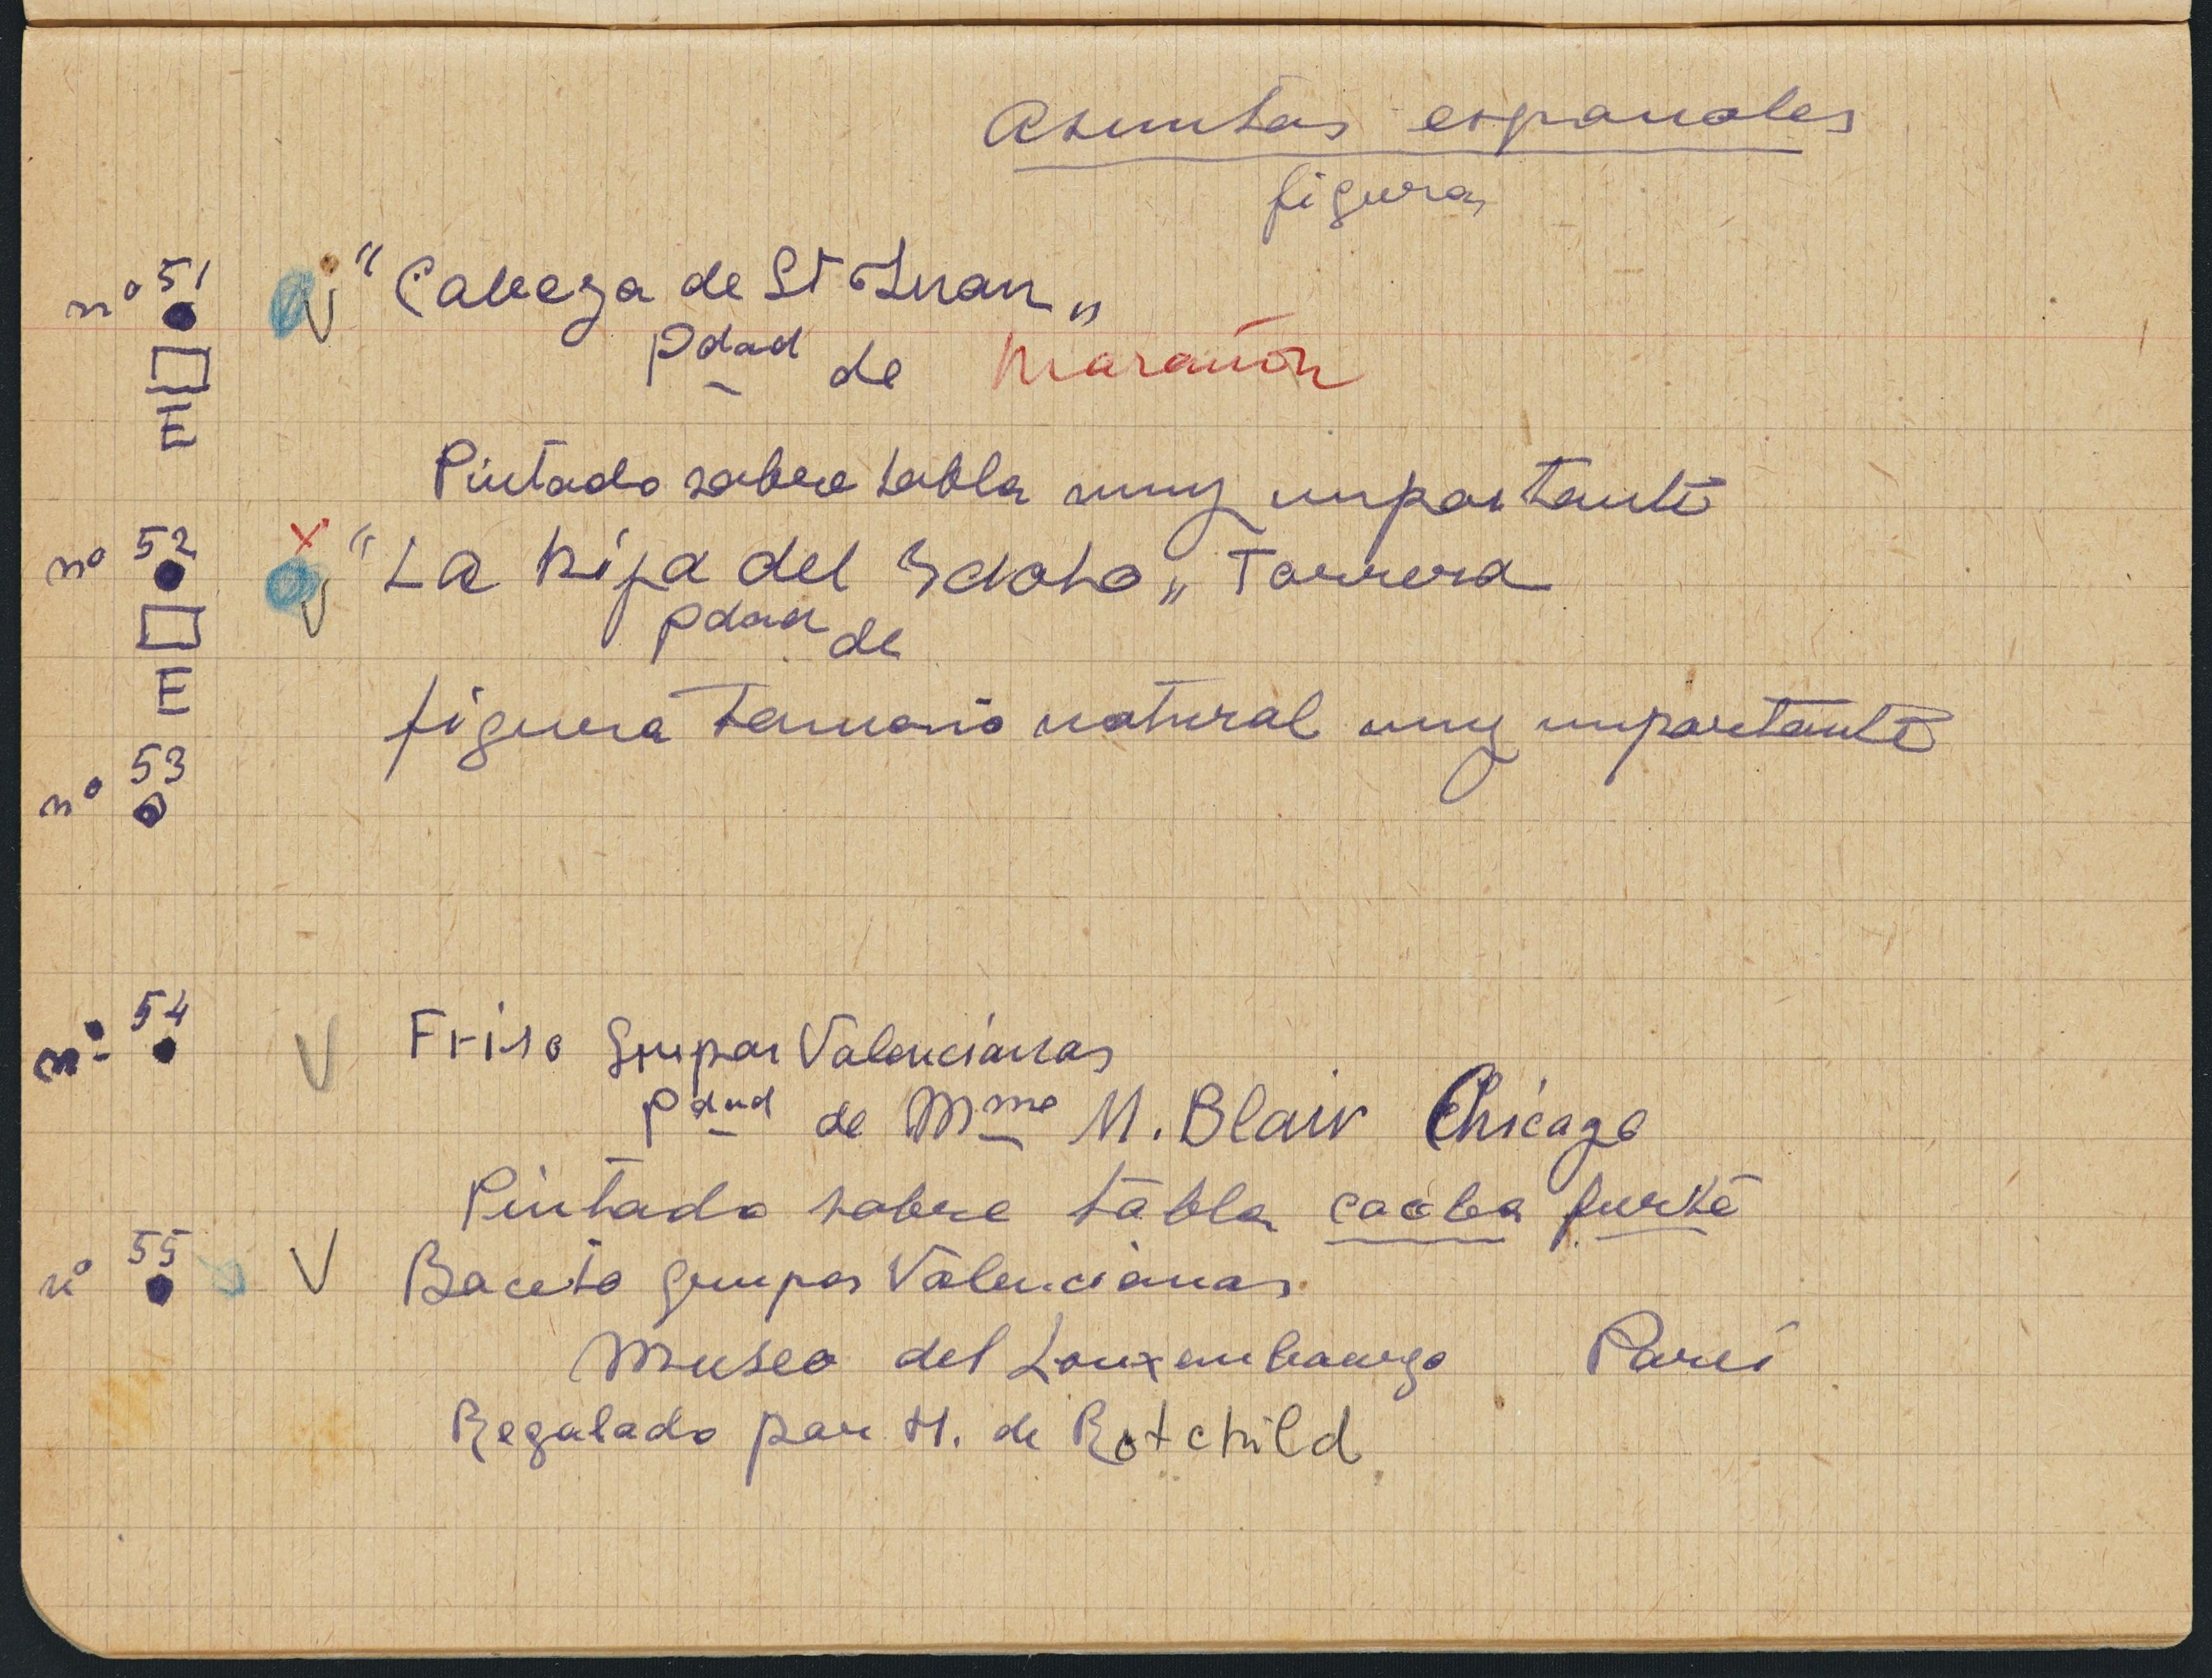 Asuntos espanoles
figuras
nº 51 "Cabeza de St Juan„
pdad de Marañón
E
Pintado sobre tabla muy importante
nº 52 "La hija del Idolo„ Torrera
pdad de
E
figura tamano natural muy importante
nº 53
nº 54 Friso grupos Valencianas
pdad de Mme M. Blair Chicago
Pintado sobre tabla caoba
nº 55 Boceto grupos Valencianas
Museo del Louxembourgo Paris
Regalado por H. de Rotchild